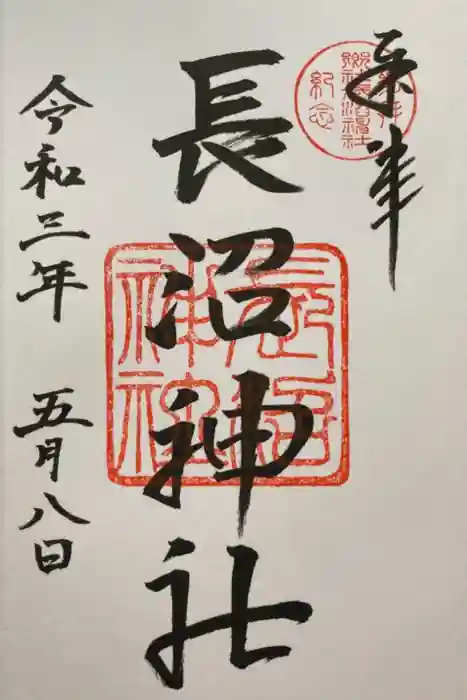 奉拝
長沼神社
令和三年 五月八日
長沼
神社
参拝
紀念